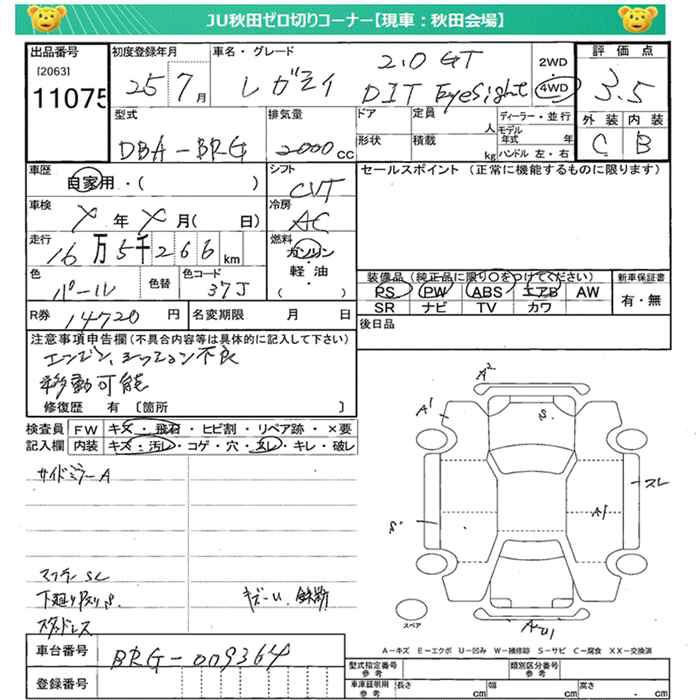 JU秋田ゼロ切りコーナー【現車：秋田会場】
出品番号
[2063]
11075
初度登録年月
25 7月
車名・グレード
レガシィ
2.0 GT
DIT EyeSight
2WD
4WD
評価点
3.5
外装 内装
C B
型式
DBA-BRG
排気量
2000cc
ドア
定員
人
形状
積載
kg
ディーラー・並行
モデル年式 年
ハンドル 左・右
車歴
自家用・( )
シフト
CVT
セールスポイント（正常に機能するものに限ります）
車検
X年X月( 日)
冷房
AC
走行
16万5千266km
燃料
ガソリン
・
軽油
( )
色
パール
色替
色コード
37J
装備品（純正品に限り○をつけてください）
PS PW ABS エアB AW
SR ナビ TV カワ
新車保証書
有・無
R券 14720円
名変期限 月 日
後日品
注意事項申告欄(不具合内容等は具体的に記入して下さい)
エンジン、ミッション不良
移動可能
修復歴 有 〔箇所 〕
検査員記入欄
FW キズ・飛石・ヒビ割・リペア跡・×要
内装 キズ・汚レ・コゲ・穴・スレ・キレ・破レ
サイドミラーA
マフラー SC
スタッドレス
A2
A1
S.
スレ
A1
S
スペア
A－キズ E－エクボ U－凹み W－補修跡 S－サビ C－腐食 XX－交換済
車台番号
BRG-009364
登録番号
型式指定番号
参考
類別区分番号
参考
車庫証明用
参考
長さ cm
幅 cm
高さ cm